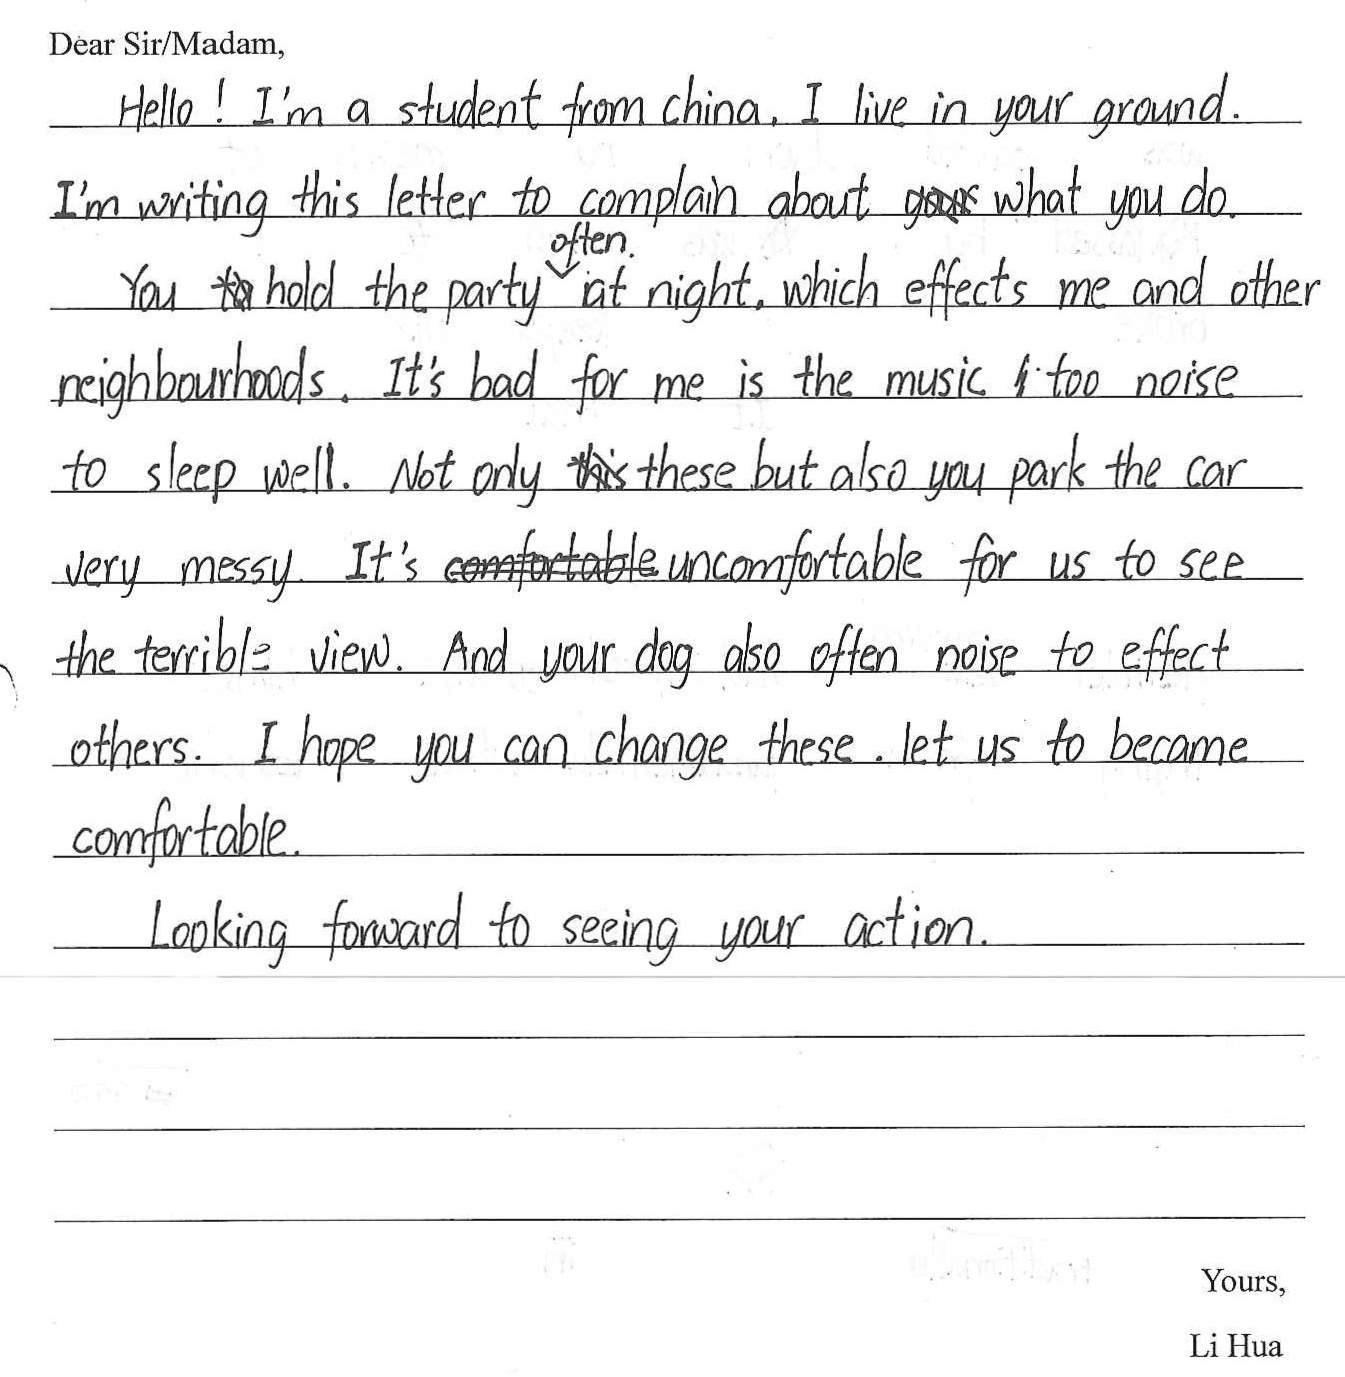 Dear Sir/Madam,
Hello! I'm a student from china, I live in your ground.
I'm writing this letter to complain about what you do.
often.
You hold the party at night, which effects me and other
neighbourhoods. It's bad for me is the music too noise
to sleep well. Not only these but also you park the car
very messy. It's comfortable uncomfortable for us to see
the terrible view. And your dog also often noise to effect
others. I hope you can change these. let us to became
comfortable.
Looking forward to seeing your action.
Yours,
Li Hua